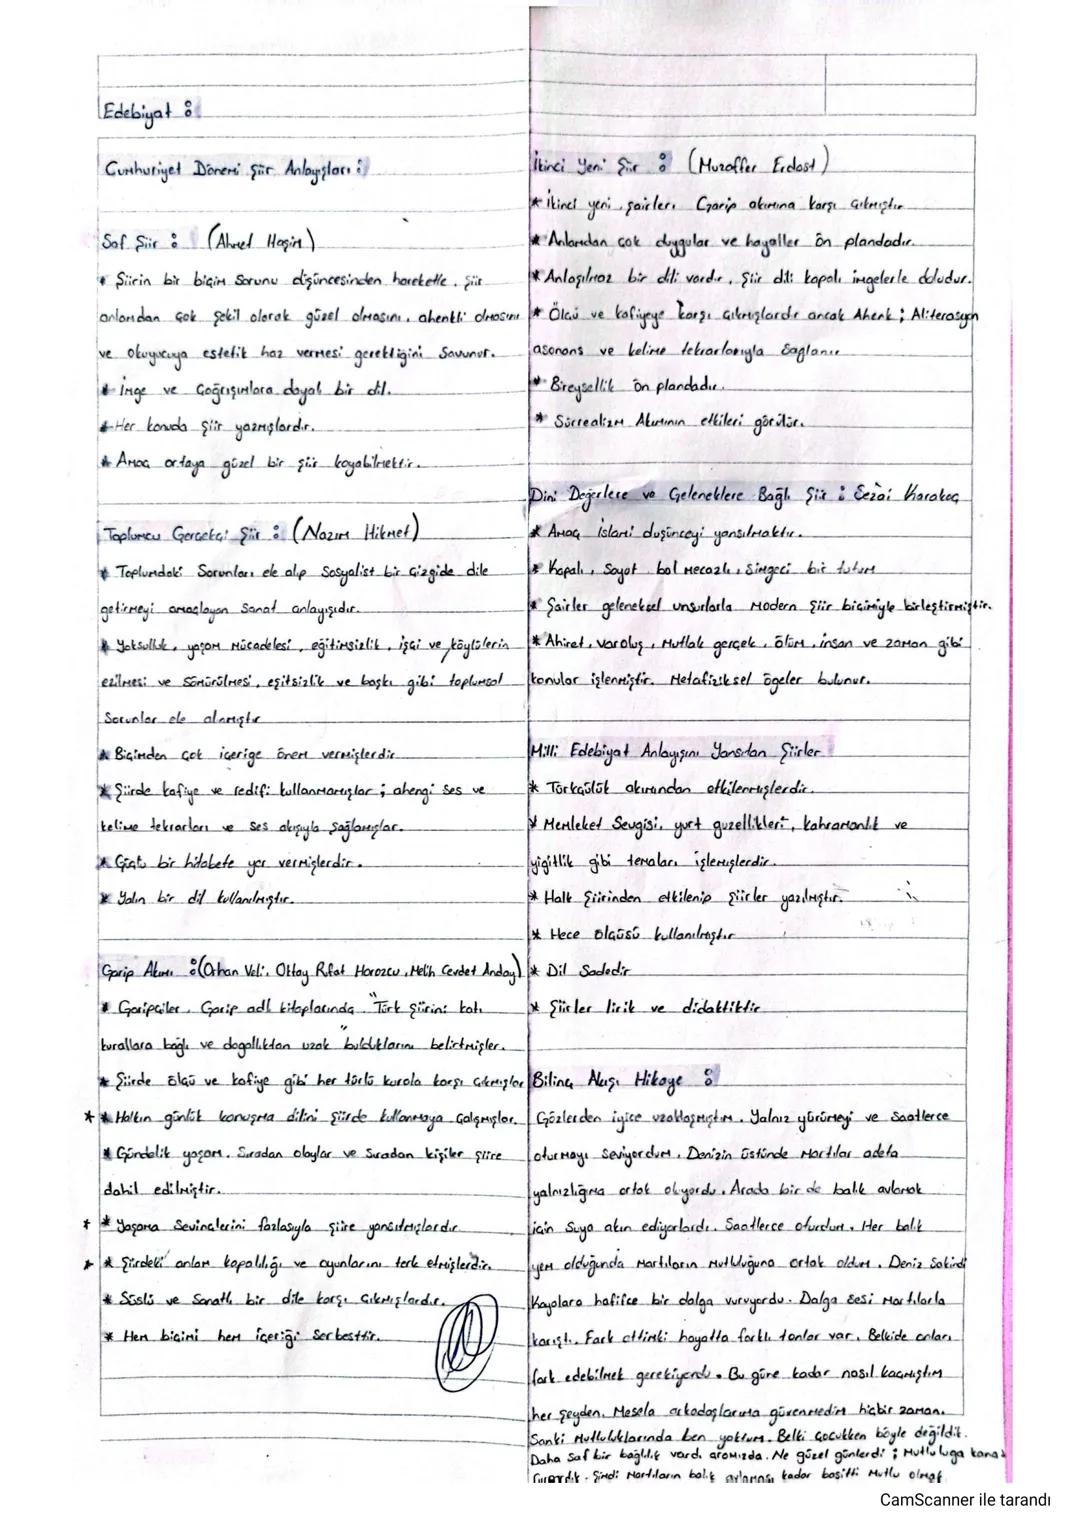 Edebiyat :
Cumhuriyet Dönemi Şiir Anlayışları :
Saf Şiir : (Ahmet Haşim)
* Şiirin bir biçim sorunu düşüncesinden hareketle, şiir
anlamdan çok şekil olarak güzel olmasını, ahenkli olmasını
ve okuyucuya estetik haz vermesi gerektiğini savunur.
* İmge ve Çağrışımlara dayalı bir dil.
* Her konuda şiir yazmışlardır.
* Amaç ortaya güzel bir şiir koyabilmektir.
Toplumcu Gerçekçi Şiir : (Nazım Hikmet)
* Toplumdaki Sorunları ele alıp Sosyalist bir Çizgide dile
getirmeyi amaçlayan Sanat anlayışıdır.
* Yoksulluk, yaşam Mücadelesi, eğitimsizlik, işçi ve köylülerin
ezilmesi ve sömürülmesi, eşitsizlik ve baskı gibi toplumsal
Sorunlar ele alınmıştır
* Biçimden çok içeriğe önem vermişlerdir
* Şiirde kafiye ve redifi kullanmamışlar ; ahengi ses ve
kelime tekrarları ve ses akışıyla sağlamışlar.
* Güçlü bir hitabete yer vermişlerdir.
* Yalın bir dil kullanılmıştır.
Garip Akımı :(Orhan Veli, Oktay Rıfat Horozcu, Melih Cevdet Anday)
* Garipçiler, Garip adlı kitaplarında "Türk şiirini katı
kurallara bağlı ve doğallıktan uzak" bulduklarını belirtmişler.
* Şiirde ölçü ve kafiye gibi her türlü kurala karşı çıkmışlar
* * Halkın günlük konuşma dilini şiirde kullanmaya Çalışmışlar.
* Gündelik yaşam, Sıradan olaylar ve Sıradan kişiler şiire
dahil edilmiştir.
* * Yaşama Sevinçlerini fazlasıyla şiire yansıtmışlardır
* * Şiirdeki anlam kapalılığı ve oyunlarını terk etmişlerdir.
* Süslü ve Sanatlı bir dile karşı Çıkmışlardır.
* Hem biçimi hem içeriği Serbesttir.
İkinci Yeni Şiir : (Muzaffer Erdost)
* İkinci yeni şairleri Garip akımına karşı çıkmıştır
* Anlamdan çok duygular ve hayaller ön plandadır.
* Anlaşılmaz bir dili vardır, Şiir dili kapalı imgelerle doludur.
* Ölçü ve kafiyeye karşı çıkmışlardır ancak Ahenk ; Aliterasyon
asonans ve kelime tekrarlarıyla Sağlanır
* Bireysellik ön plandadır.
* Sürrealizm Akımının etkileri görülür.
Dini Değerlere ve Geleneklere Bağlı Şiir : Sezai Karakoç
* Amaç İslami düşünceyi yansıtmaktır.
* Kapalı, Soyut bol mecazlı, Simgeci bir tutum
* Şairler geleneksel unsurlarla Modern şiir biçimiyle birleştirmiştir.
* Ahiret, varoluş, Mutlak gerçek, ölüm, insan ve zaman gibi
konular işlenmiştir. Metafiziksel ögeler bulunur.
Milli Edebiyat Anlayışını Yansıtan Şiirler
* Türkçülük akımından etkilenmişlerdir.
* Memleket Sevgisi, yurt guzellikleri, kahramanlık ve
yiğitlik gibi temaları işlemişlerdir.
* Halk Şiirinden etkilenip şiirler yazılmıştır.
* Hece ölçüsü kullanılmıştır
* Dil Sadedir
* Şiirler lirik ve didaktiktir
Bilinç Akışı Hikaye :
Gözlerden iyice uzaklaşmıştım. Yalnız yürümeyi ve Saatlerce
oturmayı Seviyordum. Denizin üstünde Martılar adeta
yalnızlığıma ortak oluyordu. Arada bir de balık avlamak
için Suya akın ediyorlardı. Saatlerce oturdum. Her balık
yem olduğunda Martıların Mutluluğuna ortak oldum. Deniz Sakindi
Kayalara hafifce bir dalga vuruyordu. Dalga Sesi Martılarla
karıştı. Fark ettimki hayatta farklı tonlar var. Belkide onları
fark edebilmek gerekiyordu. Bu güne kadar nasıl kaçmıştım
her şeyden. Mesela arkadaşlarıma güvenmedim hiçbir zaman.
Sanki Mutluluklarında ben yoktum. Belki Çocukken böyle değildik.
Daha Saf bir bağlılık vardı aramızda. Ne güzel günlerdi ; Mutluluga
Şimdi Martıların balık avlaması kadar basitti Mutlu olmak
CamScanner ile tarandı